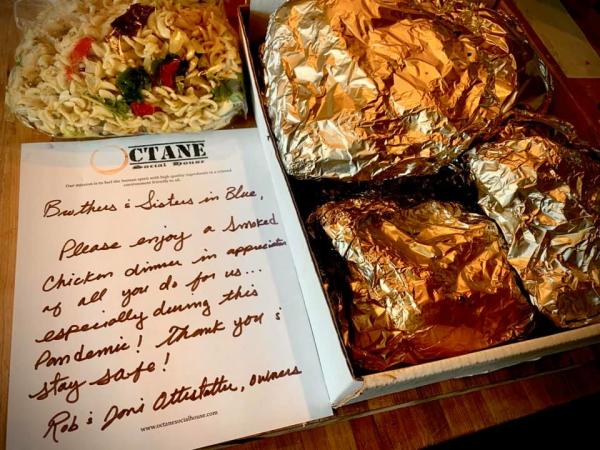 OCTANE
Social House
Our mission is to fuel the human spirit with high quality ingredients in a relaxed
environment friendly to all.
Brothers & Sisters in Blue,
Please enjoy a Smoked
Chicken dinner in appreciation
of all you do for us...
especially during this
Pandemic! Thank you &
stay safe!
Rob & Joni Ottestatter, owners
www.octanesocialhouse.com